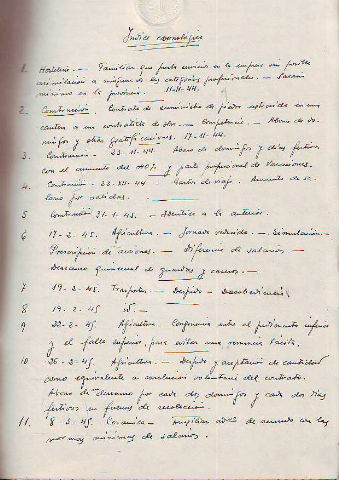 Indice cronológico
1. Hostelería. — Familiares que presta servicio en la empresa sin posible
asimilación a ninguna de las categorías profesionales. — Salario
mínimo en la provincia. 11-11-44.
2. Construcción. Contrato de suministro de piedra extraída en una
cantera a un contratista de obra. — Competencia. — Abono de do-
mingos y otras gratificaciones. 17-11-44.
3. 23-11-44. Abono de domingos y días festivos
con el aumento del 40% y parte proporcional de vacaciones.
4. 23-XII-44. Gastos de viaje. Aumento de sa-
lario por salidas.
5 Construcción 31-1-45. — Idéntica a la anterior.
6 17-2-45. Agricultura. — Jornada reducida. — Simulación —
Prescripción de acciones. — Diferencia de salarios —
Descanso quincenal de guardas y caseros. —
7 19-2-45. Transportes — Despido — Desobediencia
8 19-2-45 id —
9 22-2-45. Agricultura. Congruencia entre el pedimento inferior
y el fallo superior, para evitar una renuncia tácita.
10 26-2-45. Agricultura. — Despido y aceptación de cantidad
como equivalente a conclusión voluntaria del contrato.
Abono de descanso por cada dos domingos y cada dos días
festivos en faenas de recolección.
11. 8-2-45. Cerámica — de acuerdo con las
normas mínimas de salario.